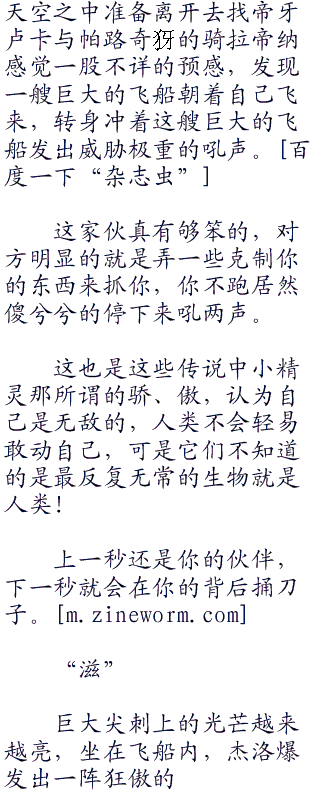 天空之中准备离开去找帝牙
卢卡与帕路奇犽的骑拉帝纳
感觉一股不详的预感，发现
一艘巨大的飞船朝着自己飞
来，转身冲着这艘巨大的飞
船发出威胁极重的吼声。[百
度一下“杂志虫”]
这家伙真有够笨的，对
方明显的就是弄一些克制你
的东西来抓你，你不跑居然
傻兮兮的停下来吼两声。
这也是这些传说中小精
灵那所谓的骄、傲，认为自
己是无敌的，人类不会轻易
敢动自己，可是它们不知道
的是最反复无常的生物就是
人类！
上一秒还是你的伙伴，
下一秒就会在你的背后捅刀
子。[m.zineworm.com]
“滋”
巨大尖刺上的光芒越来
越亮，坐在飞船内，杰洛爆
发出一阵狂傲的